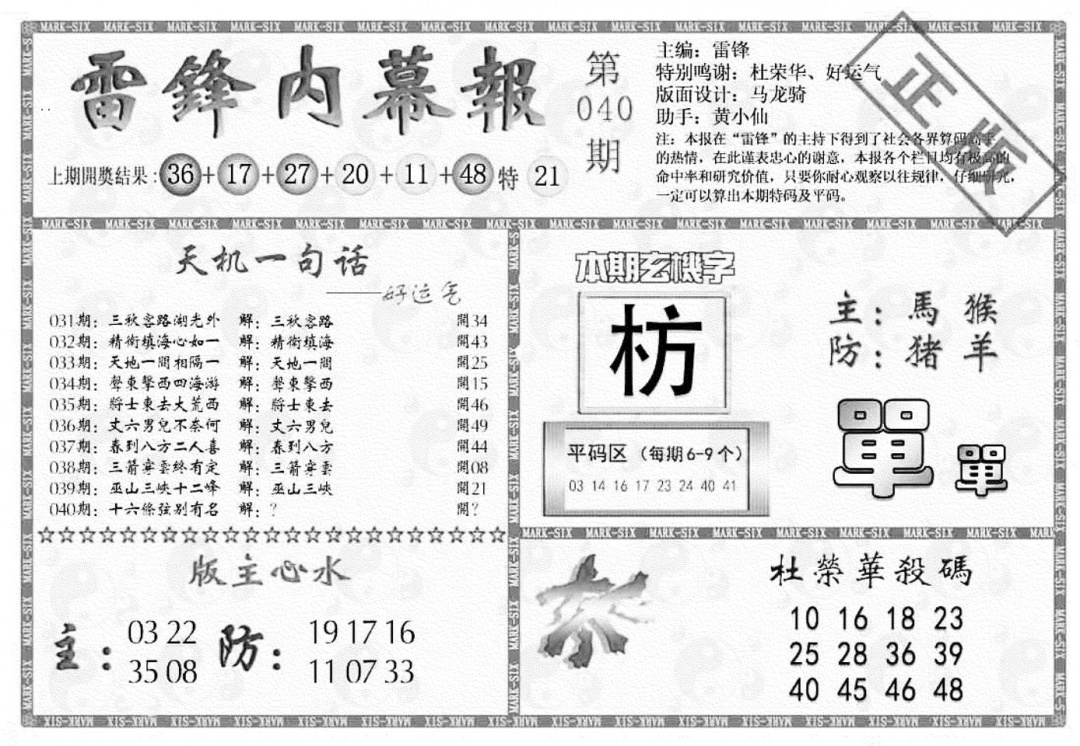 雷鋒内幕報
第
040
期
主编：雷锋
特别鸣谢：杜荣华、好运气
版面设计：马龙骑
助手：黄小仙
注：本报在“雷锋”的主持下得到了社会各界算码高手
的热情，在此谨表忠心的谢意，本报各个栏目均有极高的
命中率和研究价值，只要你耐心观察以往规律，仔细研究，
一定可以算出本期特码及平码。
正版
上期開獎结果：36+17+27+20+11+48特 21
天机一句话
——好运气
031期：三秋客路湖光外 解：三秋客路 開34
032期：精衛填海心如一 解：精衛填海 開43
033期：天地一間相隔一 解：天地一間 開25
034期：聲東擊西四海游 解：聲東擊西 開15
035期：將士東去大荒西 解：將士東去 開46
036期：丈六男兒不奈何 解：丈六男兒 開49
037期：春到八方二人喜 解：春到八方 開44
038期：三箭穿雲終有定 解：三箭穿雲 開08
039期：巫山三峽十二峰 解：巫山三峽 開21
040期：十六條弦别有名 解：？ 開？
☆☆☆☆☆☆☆☆☆☆☆☆☆☆☆☆☆☆☆☆☆☆☆
版主心水
主：
03 22
35 08
防：
19 17 16
11 07 33
本期玄機字
枋
平码区（每期6-9个）
03 14 16 17 23 24 40 41
主：馬 猴
防：猪 羊
單 單
杀
杜榮華殺碼
10 16 18 23
25 28 36 39
40 45 46 48
MARK-SIX